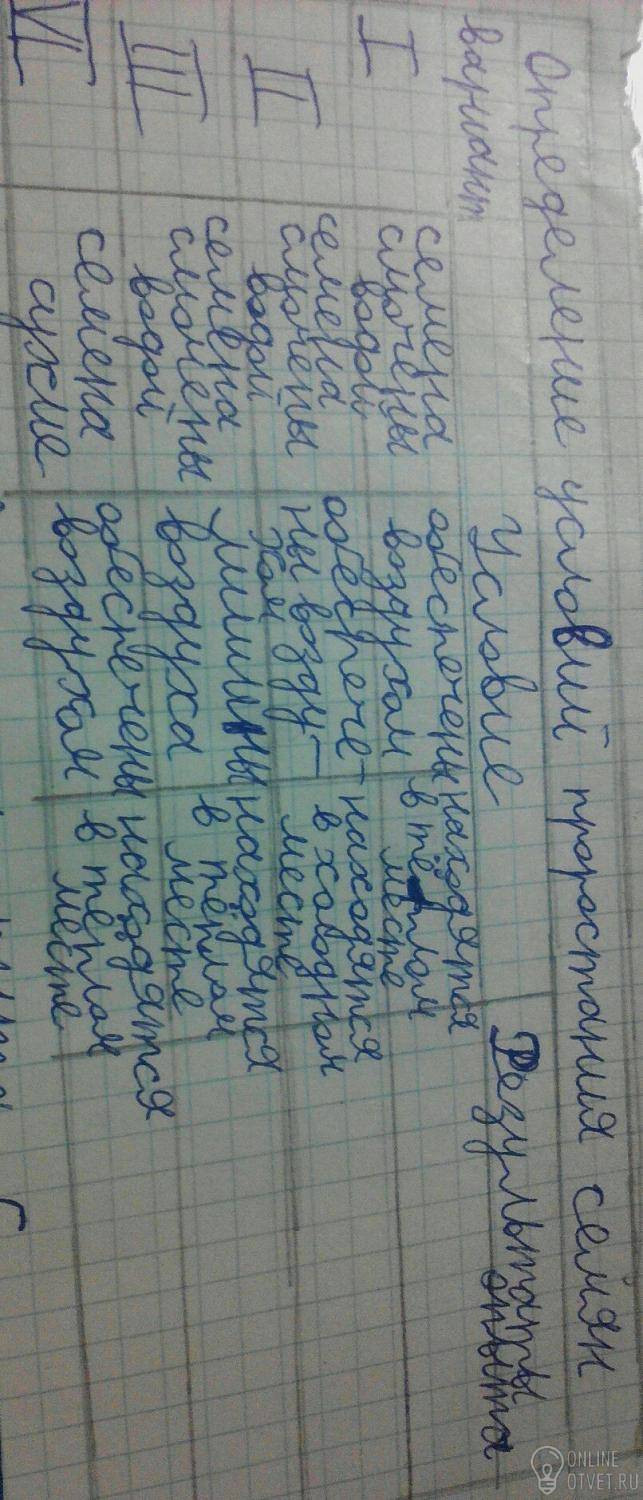 Определение условий проростания семян
вариант
Условие
Результаты
опыта
I
семена
смочены
водой
обеспечены
воздухом
находятся
в тёплом
месте
II
семена
смочены
водой
обеспрече-
ны возду-
хом
находятся
в холодном
месте
III
семена
смочены
водой
лишины
воздуха
находятся
в теплом
месте
VI
семена
сухие
обеспечены
воздухом
находятся
в теплом
месте
ONLINE
OTVET.RU